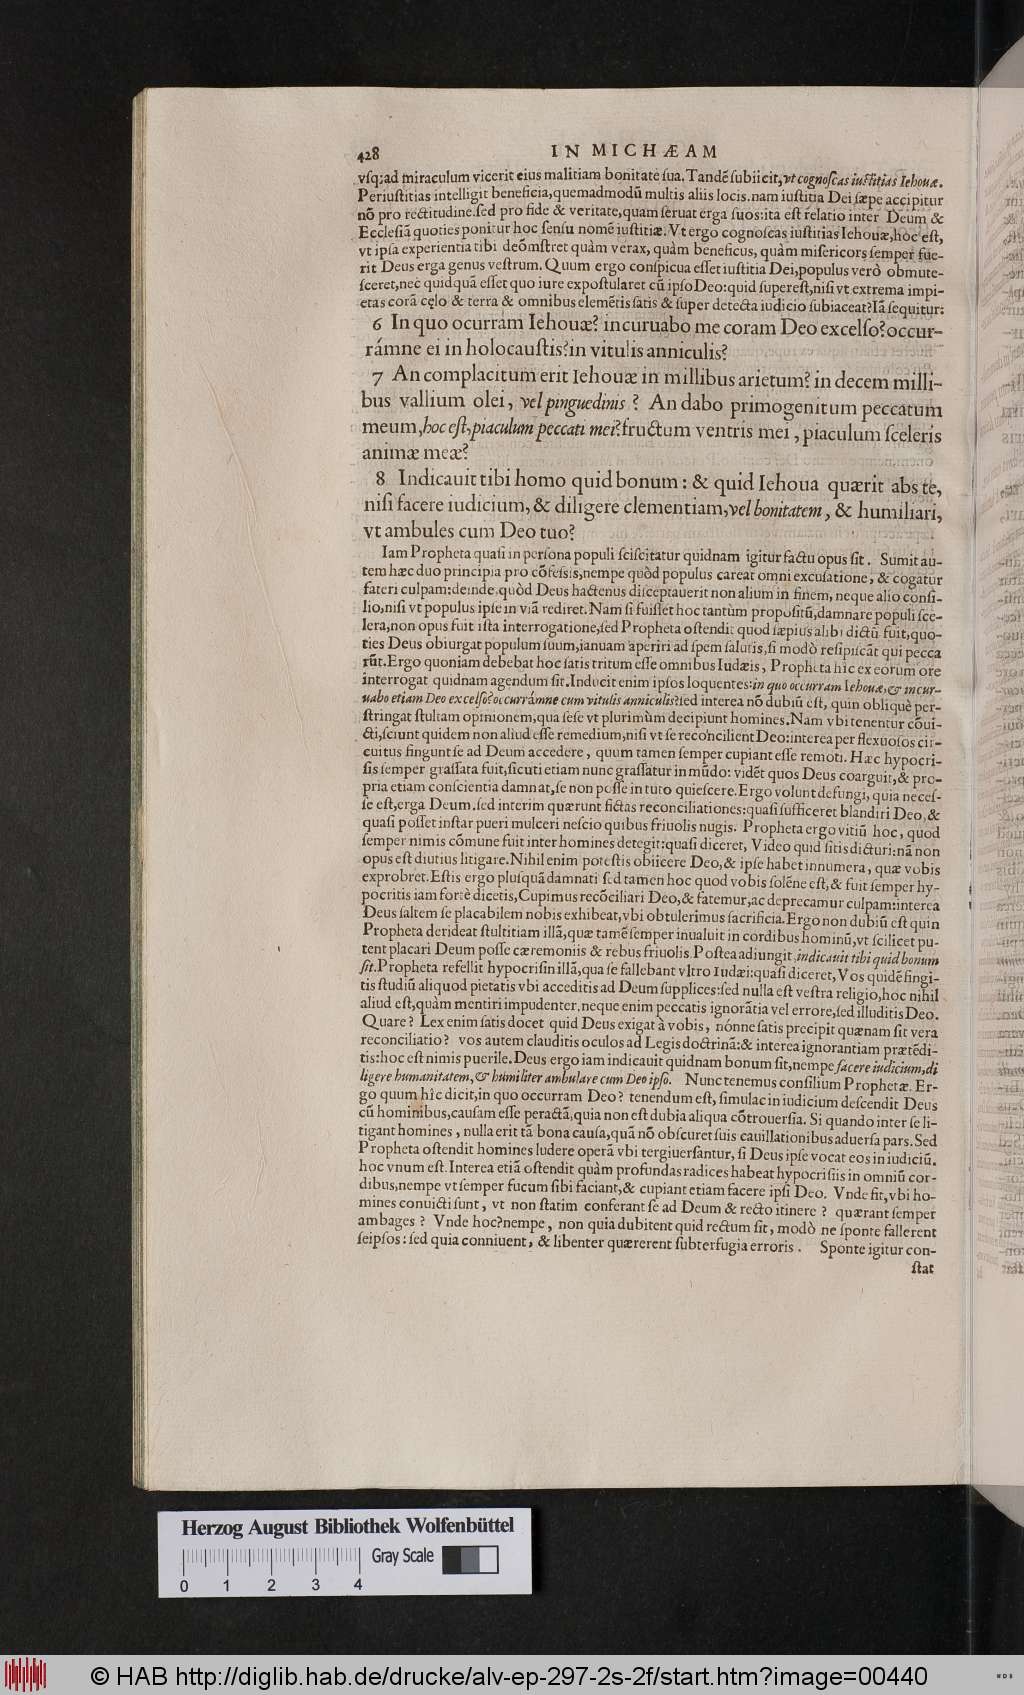 428 IN MICHÆAM
vſq; ad miraculum vicerit eius malitiam bonitate ſua. Tandē ſubiicit, vt cognoſcas iuſtitias Iehouæ.
Per iuſtitias intelligit beneficia, quemadmodū multis aliis locis. nam iuſtitia Dei ſæpe accipitur
nō pro rectitudine. ſed pro fide & veritate, quam ſeruat erga ſuos: ita eſt relatio inter Deum &
Eccleſiā quoties ponitur hoc ſenſu nomē iuſtitiæ. Vt ergo cognoſcas iuſtitias Iehouæ, hoc eſt,
vt ipſa experientia tibi deōmſtret quàm verax, quàm beneficus, quàm miſericors ſemper fue-
rit Deus erga genus veſtrum. Quum ergo conſpicua eſſet iuſtitia Dei, populus verò obmute-
ſceret, nec quidquā eſſet quo iure expoſtularet cū ipſo Deo: quid ſupereſt, niſi vt extrema impi-
etas corā cęlo & terra & omnibus elemētis ſatis & ſuper detecta iudicio ſubiaceat? Iā ſequitur:
6 In quo ocurram Iehouæ? incuruabo me coram Deo excelſo? occur-
rámne ei in holocauſtis? in vitulis anniculis?
7 An complacitum erit Iehouæ in millibus arietum? in decem milli-
bus vallium olei, vel pinguedinis? An dabo primogenitum peccatum
meum, hoc eſt, piaculum peccati mei? fructum ventris mei, piaculum ſceleris
animæ meæ?
8 Indicauit tibi homo quid bonum: & quid Iehoua quærit abs te,
niſi facere iudicium, & diligere clementiam, vel bonitatem, & humiliari,
vt ambules cum Deo tuo?
Iam Propheta quaſi in perſona populi ſciſcitatur quidnam igitur factu opus ſit. Sumit au-
tem hæc duo principia pro cōfeſsis, nempe quòd populus careat omni excuſatione, & cogatur
fateri culpam: deinde, quòd Deus hactenus diſceptauerit non alium in finem, neque alio conſi-
lio, niſi vt populus ipſe in viā rediret. Nam ſi fuiſſet hoc tantùm propoſitū, damnare populi ſce-
lera, non opus fuit iſta interrogatione, ſed Propheta oſtendit quod ſæpius alibi dictū fuit, quo-
ties Deus obiurgat populum ſuum, ianuam aperiri ad ſpem ſalutis, ſi modò reſipiſcāt qui pecca
rūt. Ergo quoniam debebat hoc ſatis tritum eſſe omnibus Iudæis, Propheta hîc ex eorum ore
interrogat quidnam agendum ſit. Inducit enim ipſos loquentes: in quo occurram Iehouæ, & incur-
uabo etiam Deo excelſo? occurrámne cum vitulis anniculis? ſed interea nō dubiū eſt, quin obliquè per-
ſtringat ſtultam opinionem, qua ſeſe vt plurimùm decipiunt homines. Nam vbi tenentur cōui-
cti, ſciunt quidem non aliud eſſe remedium, niſi vt ſe reconcilient Deo: interea per flexuoſos cir-
cuitus fingunt ſe ad Deum accedere, quum tamen ſemper cupiant eſſe remoti. Hæc hypocri-
ſis ſemper graſſata fuit, ſicuti etiam nunc graſſatur in mūdo: vidēt quos Deus coarguit, & pro-
pria etiam conſcientia damnat, ſe non poſſe in tuto quieſcere. Ergo volunt defungi, quia neceſ-
ſe eſt, erga Deum. ſed interim quærunt fictas reconciliationes: quaſi ſufficeret blandiri Deo, &
quaſi poſſet inſtar pueri mulceri neſcio quibus friuolis nugis. Propheta ergo vitiū hoc, quod
ſemper nimis cōmune fuit inter homines detegit: quaſi diceret, Video quid ſitis dicturi: nā non
opus eſt diutius litigare. Nihil enim poteſtis obiicere Deo, & ipſe habet innumera, quæ vobis
exprobret. Eſtis ergo pluſquā damnati ſed tamen hoc quod vobis ſolēne eſt, & fuit ſemper hy-
pocritis iam fortè dicetis, Cupimus recōciliari Deo, & fatemur, ac deprecamur culpam: interea
Deus ſaltem ſe placabilem nobis exhibeat, vbi obtulerimus ſacrificia. Ergo non dubiū eſt quin
Propheta derideat ſtultitiam illā, quæ tamē ſemper inualuit in cordibus hominū, vt ſcilicet pu-
tent placari Deum poſſe cæremoniis & rebus friuolis. Poſtea adiungit, indicauit tibi quid bonum
ſit. Propheta refellit hypocriſin illā, qua ſe fallebant vltro Iudæi: quaſi diceret, Vos quidē fingi-
tis ſtudiū aliquod pietatis vbi acceditis ad Deum ſupplices: ſed nulla eſt veſtra religio, hoc nihil
aliud eſt, quàm mentiri impudenter. neque enim peccatis ignorātia vel errore, ſed illuditis Deo.
Quare? Lex enim ſatis docet quid Deus exigat à vobis, nónne ſatis precipit quænam ſit vera
reconciliatio? vos autem clauditis oculos ad Legis doctrinā: & interea ignorantiam prætēdi-
tis: hoc eſt nimis puerile. Deus ergo iam indicauit quidnam bonum ſit, nempe facere iudicium, di
ligere humanitatem, & humiliter ambulare cum Deo ipſo. Nunc tenemus conſilium Prophetæ. Er-
go quum hîc dicit, in quo occurram Deo? tenendum eſt, ſimulac in iudicium deſcendit Deus
cū hominibus, cauſam eſſe peractā, quia non eſt dubia aliqua cōtrouerſia. Si quando inter ſe li-
tigant homines, nulla erit tā bona cauſa, quā nō obſcuret ſuis cauillationibus aduerſa pars. Sed
Propheta oſtendit homines ludere operā vbi tergiuerſantur, ſi Deus ipſe vocat eos in iudiciū.
hoc vnum eſt. Interea etiā oſtendit quàm profundas radices habeat hypocriſiis in omniū cor-
dibus, nempe vt ſemper fucum ſibi faciant, & cupiant etiam facere ipſi Deo. Vnde fit, vbi ho-
mines conuicti ſunt, vt non ſtatim conferant ſe ad Deum & recto itinere? quærant ſemper
ambages? Vnde hoc? nempe, non quia dubitent quid rectum ſit, modò ne ſponte fallerent
ſeipſos: ſed quia conniuent, & libenter quærerent ſubterfugia erroris. Sponte igitur con-
ſtat
Herzog August Bibliothek Wolfenbüttel
Gray Scale
0 1 2 3 4
© HAB http://diglib.hab.de/drucke/alv-ep-297-2s-2f/start.htm?image=00440